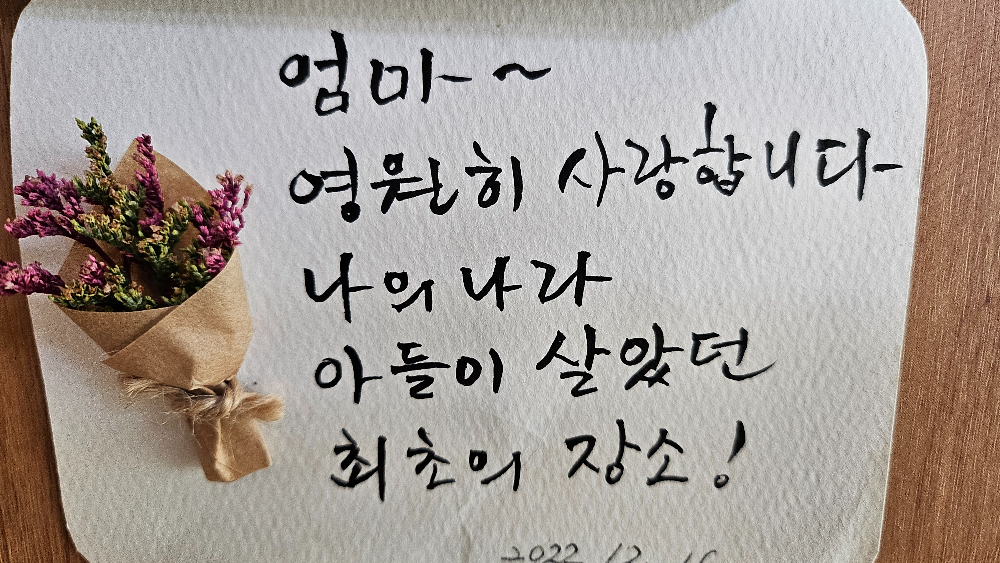 엄마~
영원히 사랑합니다
나의 나라
아들이 살았던
최초의 장소!
2022. 12.